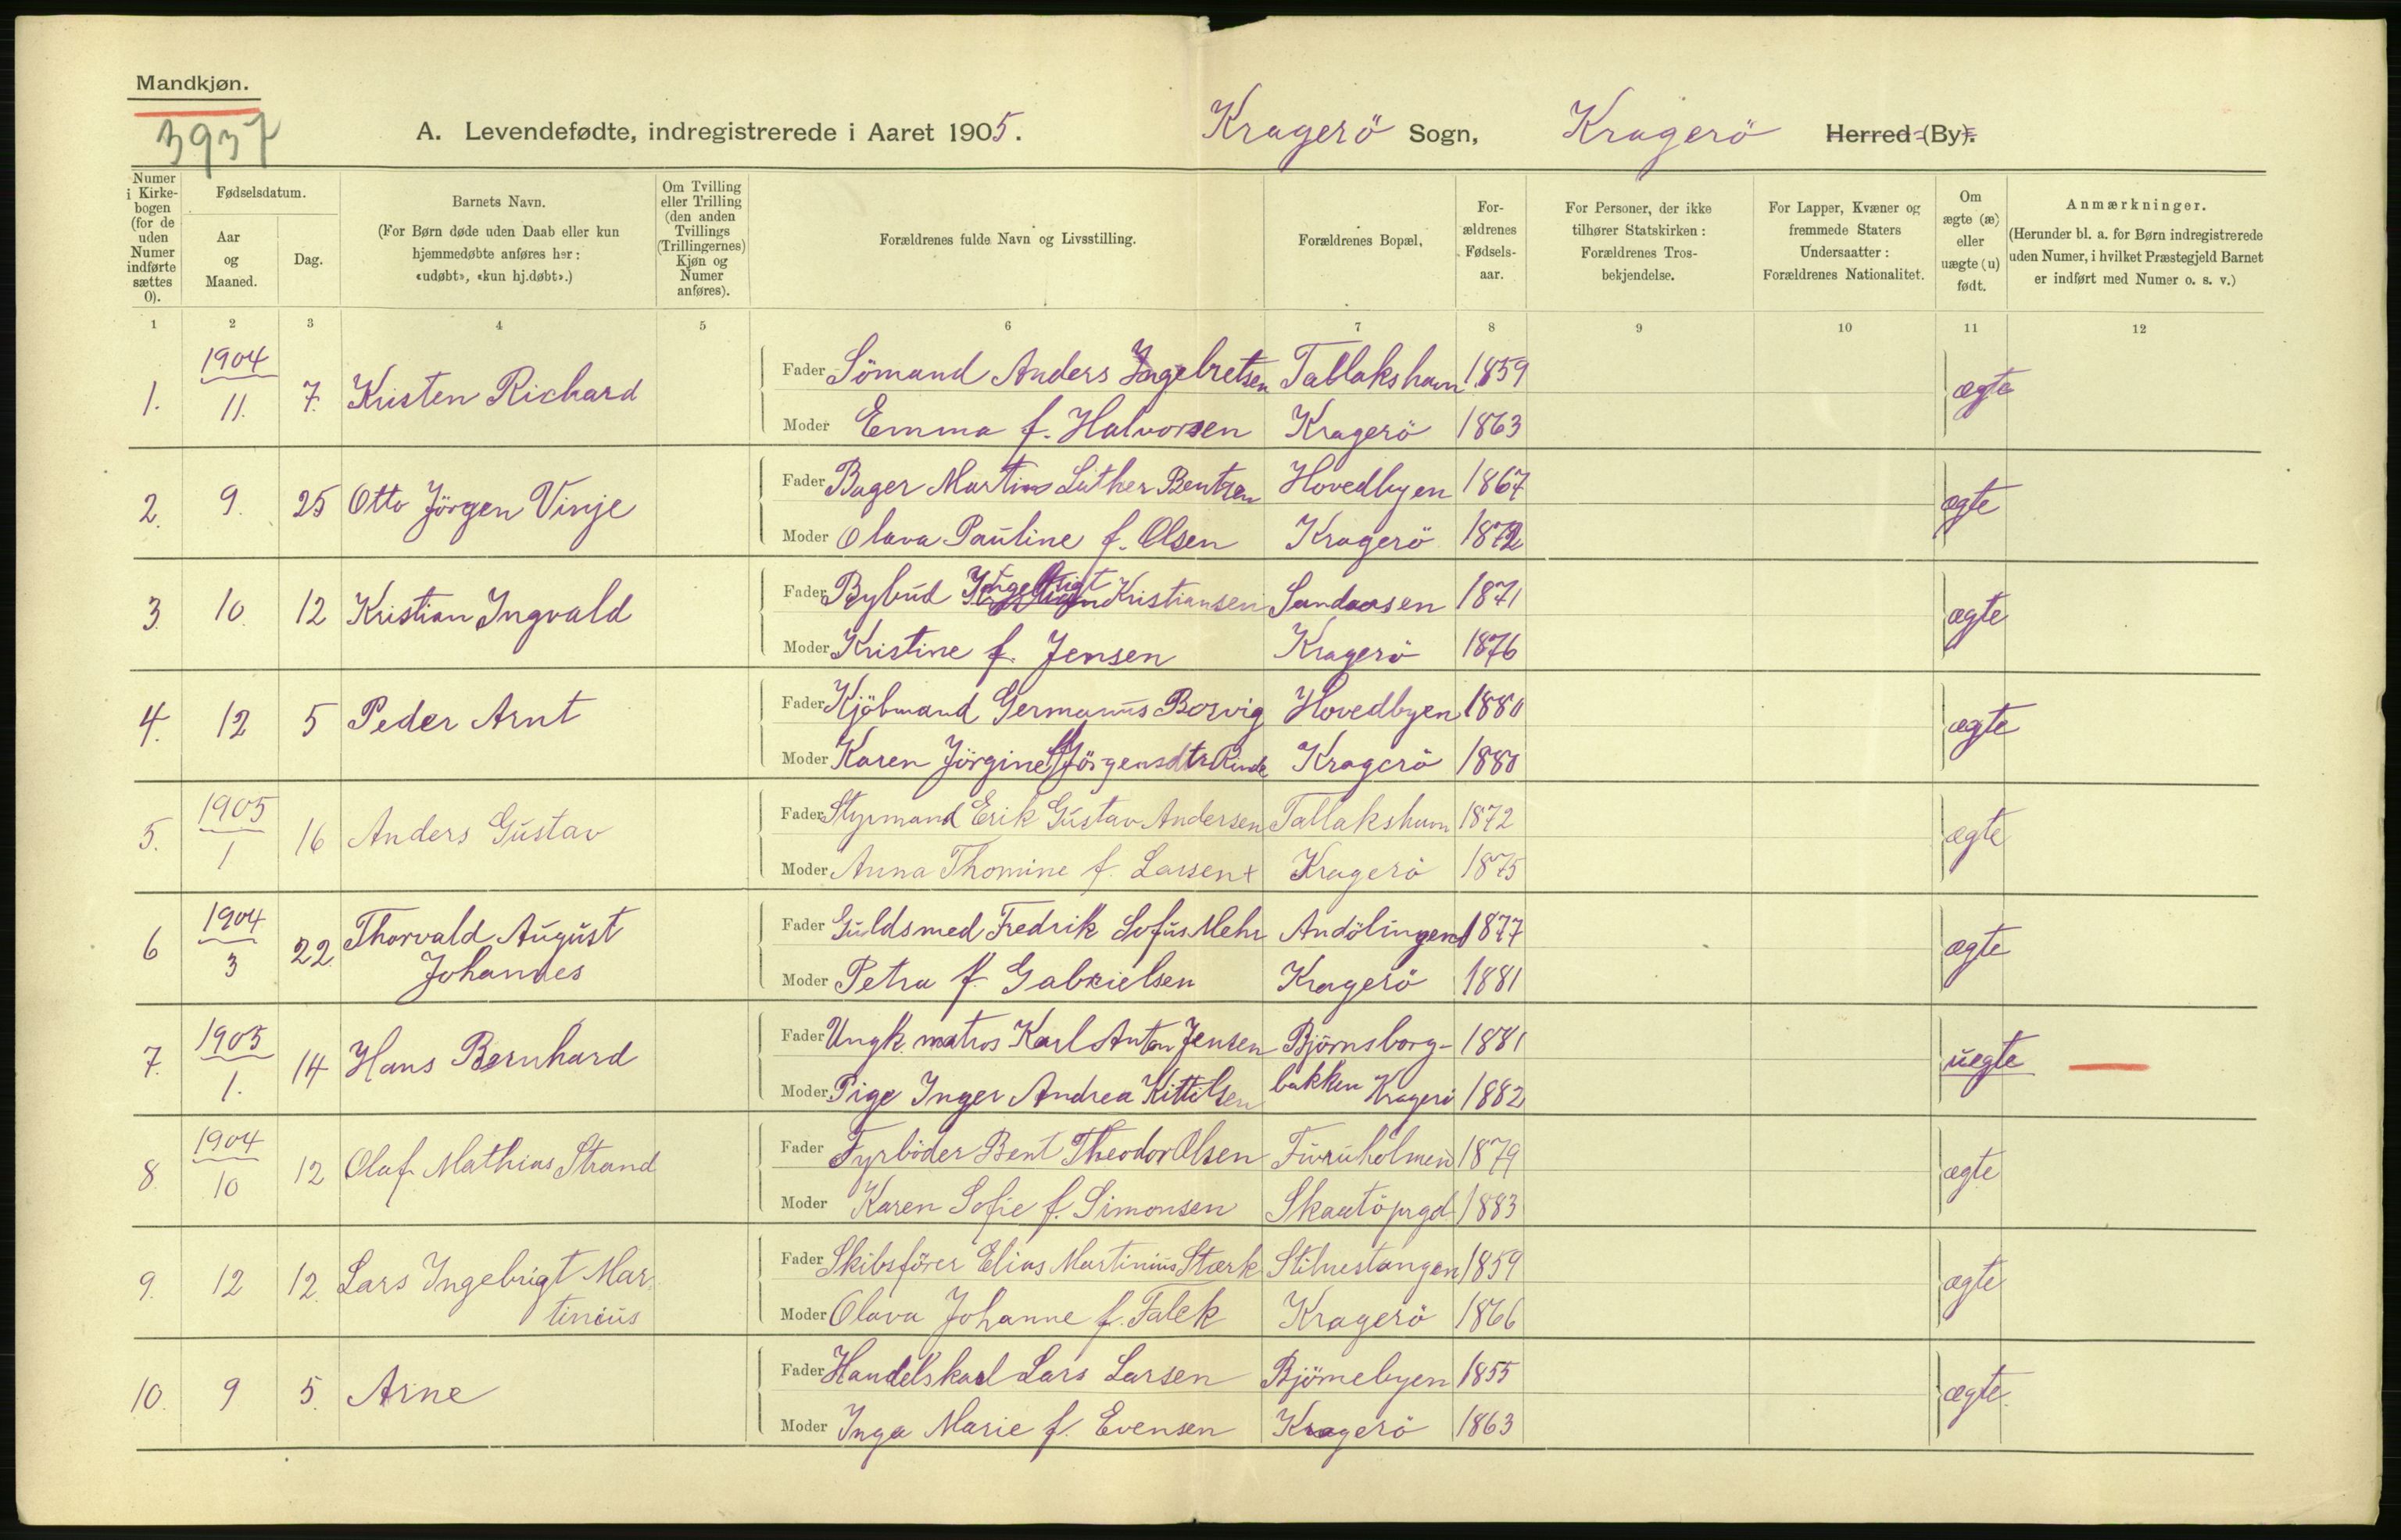 Mandkjøn.
3937
A. Levendefødte, indregistrerede i Aaret 1905. Kragerö Sogn, Kragerö Herred (By).
Numer i Kirke- bogen (for de uden Numer indførte sættes 0).
Fødselsdatum.
Aar og Maaned.
Dag.
Barnets Navn.
(For Børn døde uden Daab eller kun hjemmedøbte anføres her: «udøbt», «kun hj.døbt».)
Om Tvilling eller Trilling (den anden Tvillings (Trillingernes) Kjøn og Numer anføres).
Forældrenes fulde Navn og Livsstilling.
Forældrenes Bopæl,
For- ældrenes Fødsels- aar.
For Personer, der ikke tilhører Statskirken: Forældrenes Tros- bekjendelse.
For Lapper, Kvæner og fremmede Staters Undersaatter: Forældrenes Nationalitet.
Om ægte (æ) eller uægte (u) født.
Anmærkninger.
(Herunder bl. a. for Børn indregistrerede uden Numer, i hvilket Præstegjeld Barnet er indført med Numer o. s. v.)
1 2 3 4 5 6 7 8 9 10 11 12
1. 1904 11. 7. Kristen Richard Fader Sömand Anders Ingebretsen Tallakshavn 1859 ægte
Moder Emma f. Halvorsen Kragerö 1863
2. 9. 25 Otto Jörgen Vinje Fader Bager Martin Luther Bentzen Hovedbyen 1867 ægte
Moder Olava Pauline f. Olsen Kragerö 1872
3. 10. 12 Kristian Ingvald Fader Bybud Kristiansen Sandaasen 1871 ægte
Moder Kristine f. Jensen Kragerö 1876
4. 12 5 Peder Arnt Fader Kjöbmand Germanus Borvig Hovedbyen 1880 ægte
Moder Karen Jörgine Jörgensdtr Rinde Kragerö 1880
5. 1905 1 16 Anders Gustav Fader Styrmand Erik Gustav Andersen Tallakshavn 1872 ægte
Moder Anna Thomine f. Larsen + Kragerö 1875
6 1904 3 22. Thorvald August Johannes Fader Guldsmed Fredrik Sofus Mehr Andölingen 1877 ægte
Moder Petra f. Gabrielsen Kragerö 1881
7. 1905 1. 14 Hans Bernhard Fader Ungk. matros Karl Anton Jensen Björnsborg- 1881 uegte
Moder Pige Inger Andrea Kittilsen bakken Kragerö 1882
8. 1904 10 12 Olaf Mathias Strand Fader Fyrböder Bent Theodor Olsen Furuholmen 1879 ægte
Moder Karen Sofie f. Simonsen Skaatöprgd 1883
9. 12 12. Lars Ingebrigt Mar- tinius Fader Skibsförer Elias Martinius Stærk Stilnestangen 1859 ægte
Moder Olava Johanne f. Falck Kragerö 1866
10. 9 5. Arne Fader Handelskarl Lars Larsen Björnebyen 1855 ægte
Moder Inga Marie f. Evensen Kragerö 1863